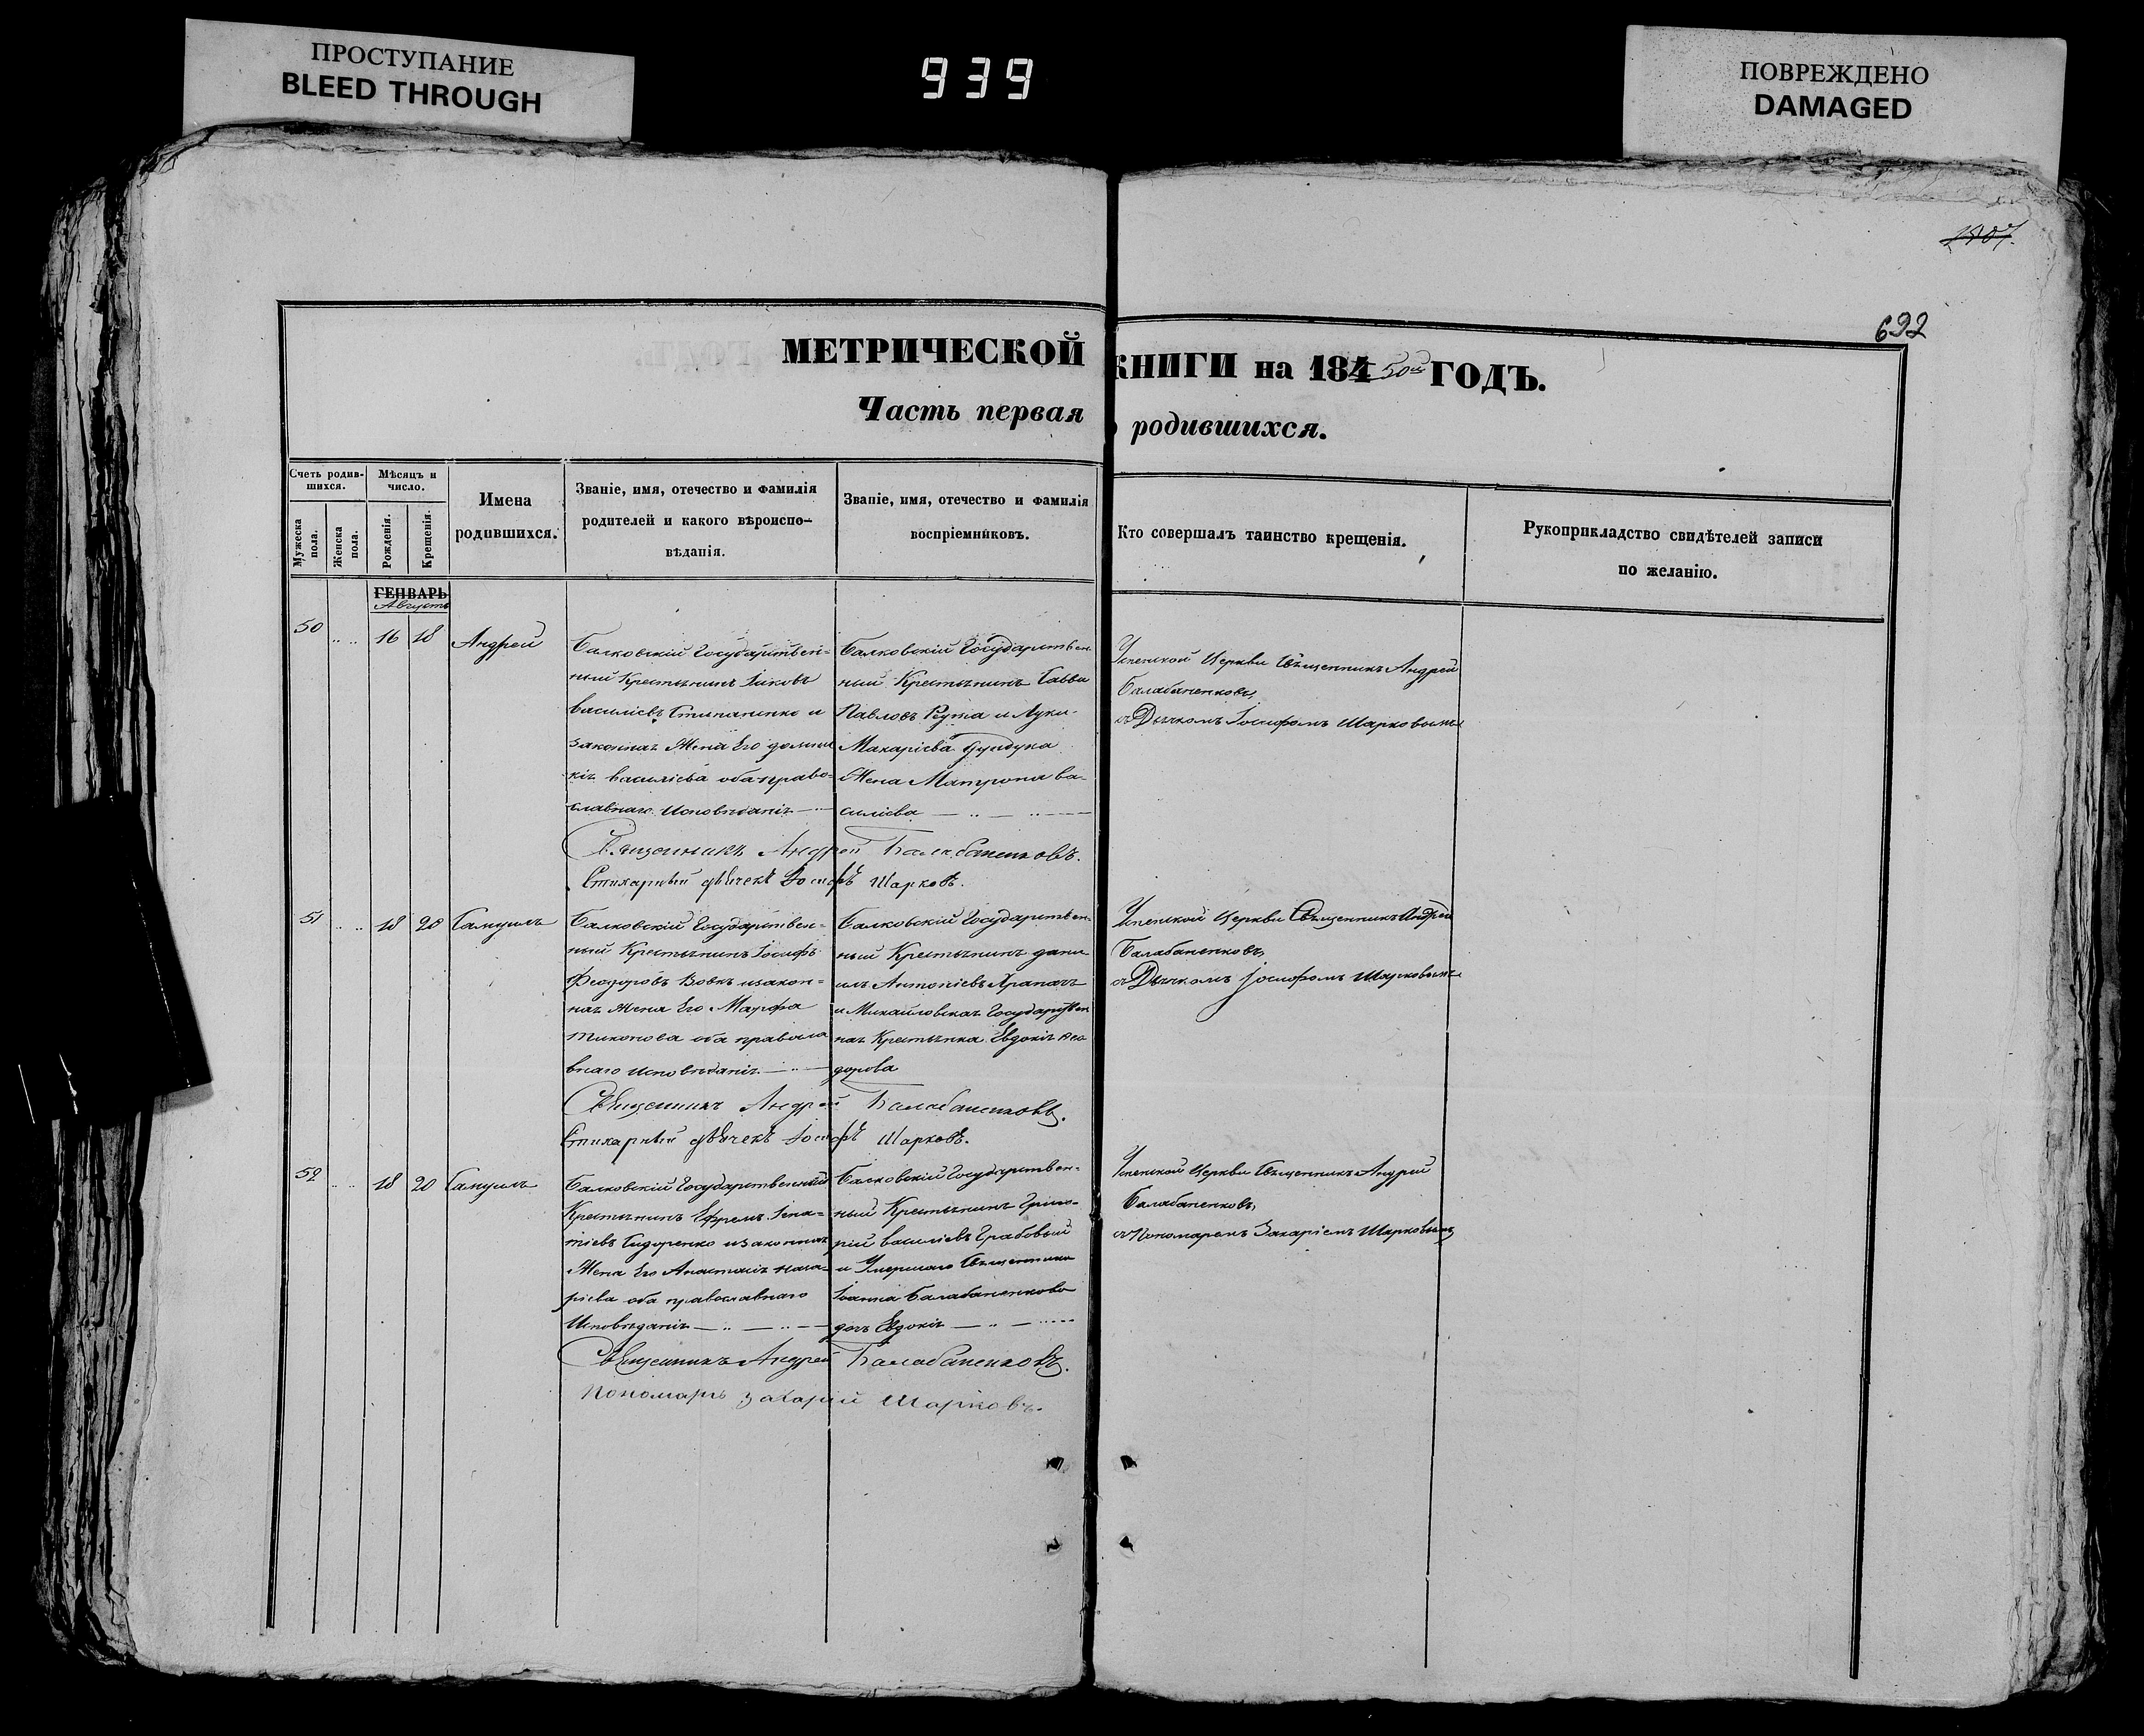 ПРОСТУПАНИЕ
BLEED THROUGH
939
ПОВРЕЖДЕНО
DAMAGED
692
МЕТРИЧЕСКОЙ КНИГИ на 184 50й ГОДЪ.
Часть первая о родившихся.
Счетъ родив-
шихся.
Мужеска пола.
Женска пола.
Мѣсяцъ и
число.
Рожденія.
Крещенія.
Имена
родившихся.
Званіе, имя, отечество и фамилія
родителей и какого вѣроиспо-
вѣданія.
Званіе, имя, отечество и фамилія
воспріемниковъ.
Кто совершалъ таинство крещенія.
Рукоприкладство свидѣтелей записи
по желанію.
ГЕНВАРЬ
Августъ
50
16 18
Андрей
Балковскій Государствен=
ный Крестьянинъ Іяковъ
Василіевъ Степаненко и
законная Жена Его
Василіева оба право=
славнаго Исповѣданія
Балковскій Государствен
ный Крестьянинъ Савва
Павловъ Реута и Луки
Макаріева
Жена Матрона Ва-
силіева
Успенской Церкви Священникъ Андрей
Балабаненковъ,
съ Дьячкомъ Іосифомъ Шарковымъ
Священникъ Андрей Балабаненковъ.
Стихарный дьячекъ Іосифъ Шарковъ.
51
18 20
Самуилъ
Балковскій Государствен=
ный Крестьянинъ Іосифъ
Феодоровъ Вовкъ изакон=
ная Жена Его Марфа
Тихонова оба правосла
внаго Исповѣданія
Балковскій Государствен-
ный Крестьянинъ Дани
илъ Антоніевъ Храпачъ
и Михайловская Государствен
ная Крестьянка Евдокія Фео
дорова
Успенской Церкви Священникъ Андрей
Балабаненковъ,
съ Дьячкомъ Іосифомъ Шарковымъ
Священникъ Андрей Балабаненковъ.
Стихарный дьячекъ Іосифъ Шарковъ.
52
18 20
Самуилъ
Балковскій Государственный
Крестьянинъ Ефремъ Игна=
тіевъ Сидоренко изаконная
Жена Его Анастасія Наза=
ріева оба православнаго
Исповѣданія
Балковскій Государствен-
ный Крестьянинъ Григо-
рій Василіевъ Грабовый
и Умершаго Священника
Іоанна Балабаненкова
дочь Евдокія
Успенской Церкви Священникъ Андрей
Балабаненковъ,
съ Пономаремъ Захаріемъ Шарковымъ
Священникъ Андрей Балабаненковъ.
Пономарь Захарій Шарковъ.